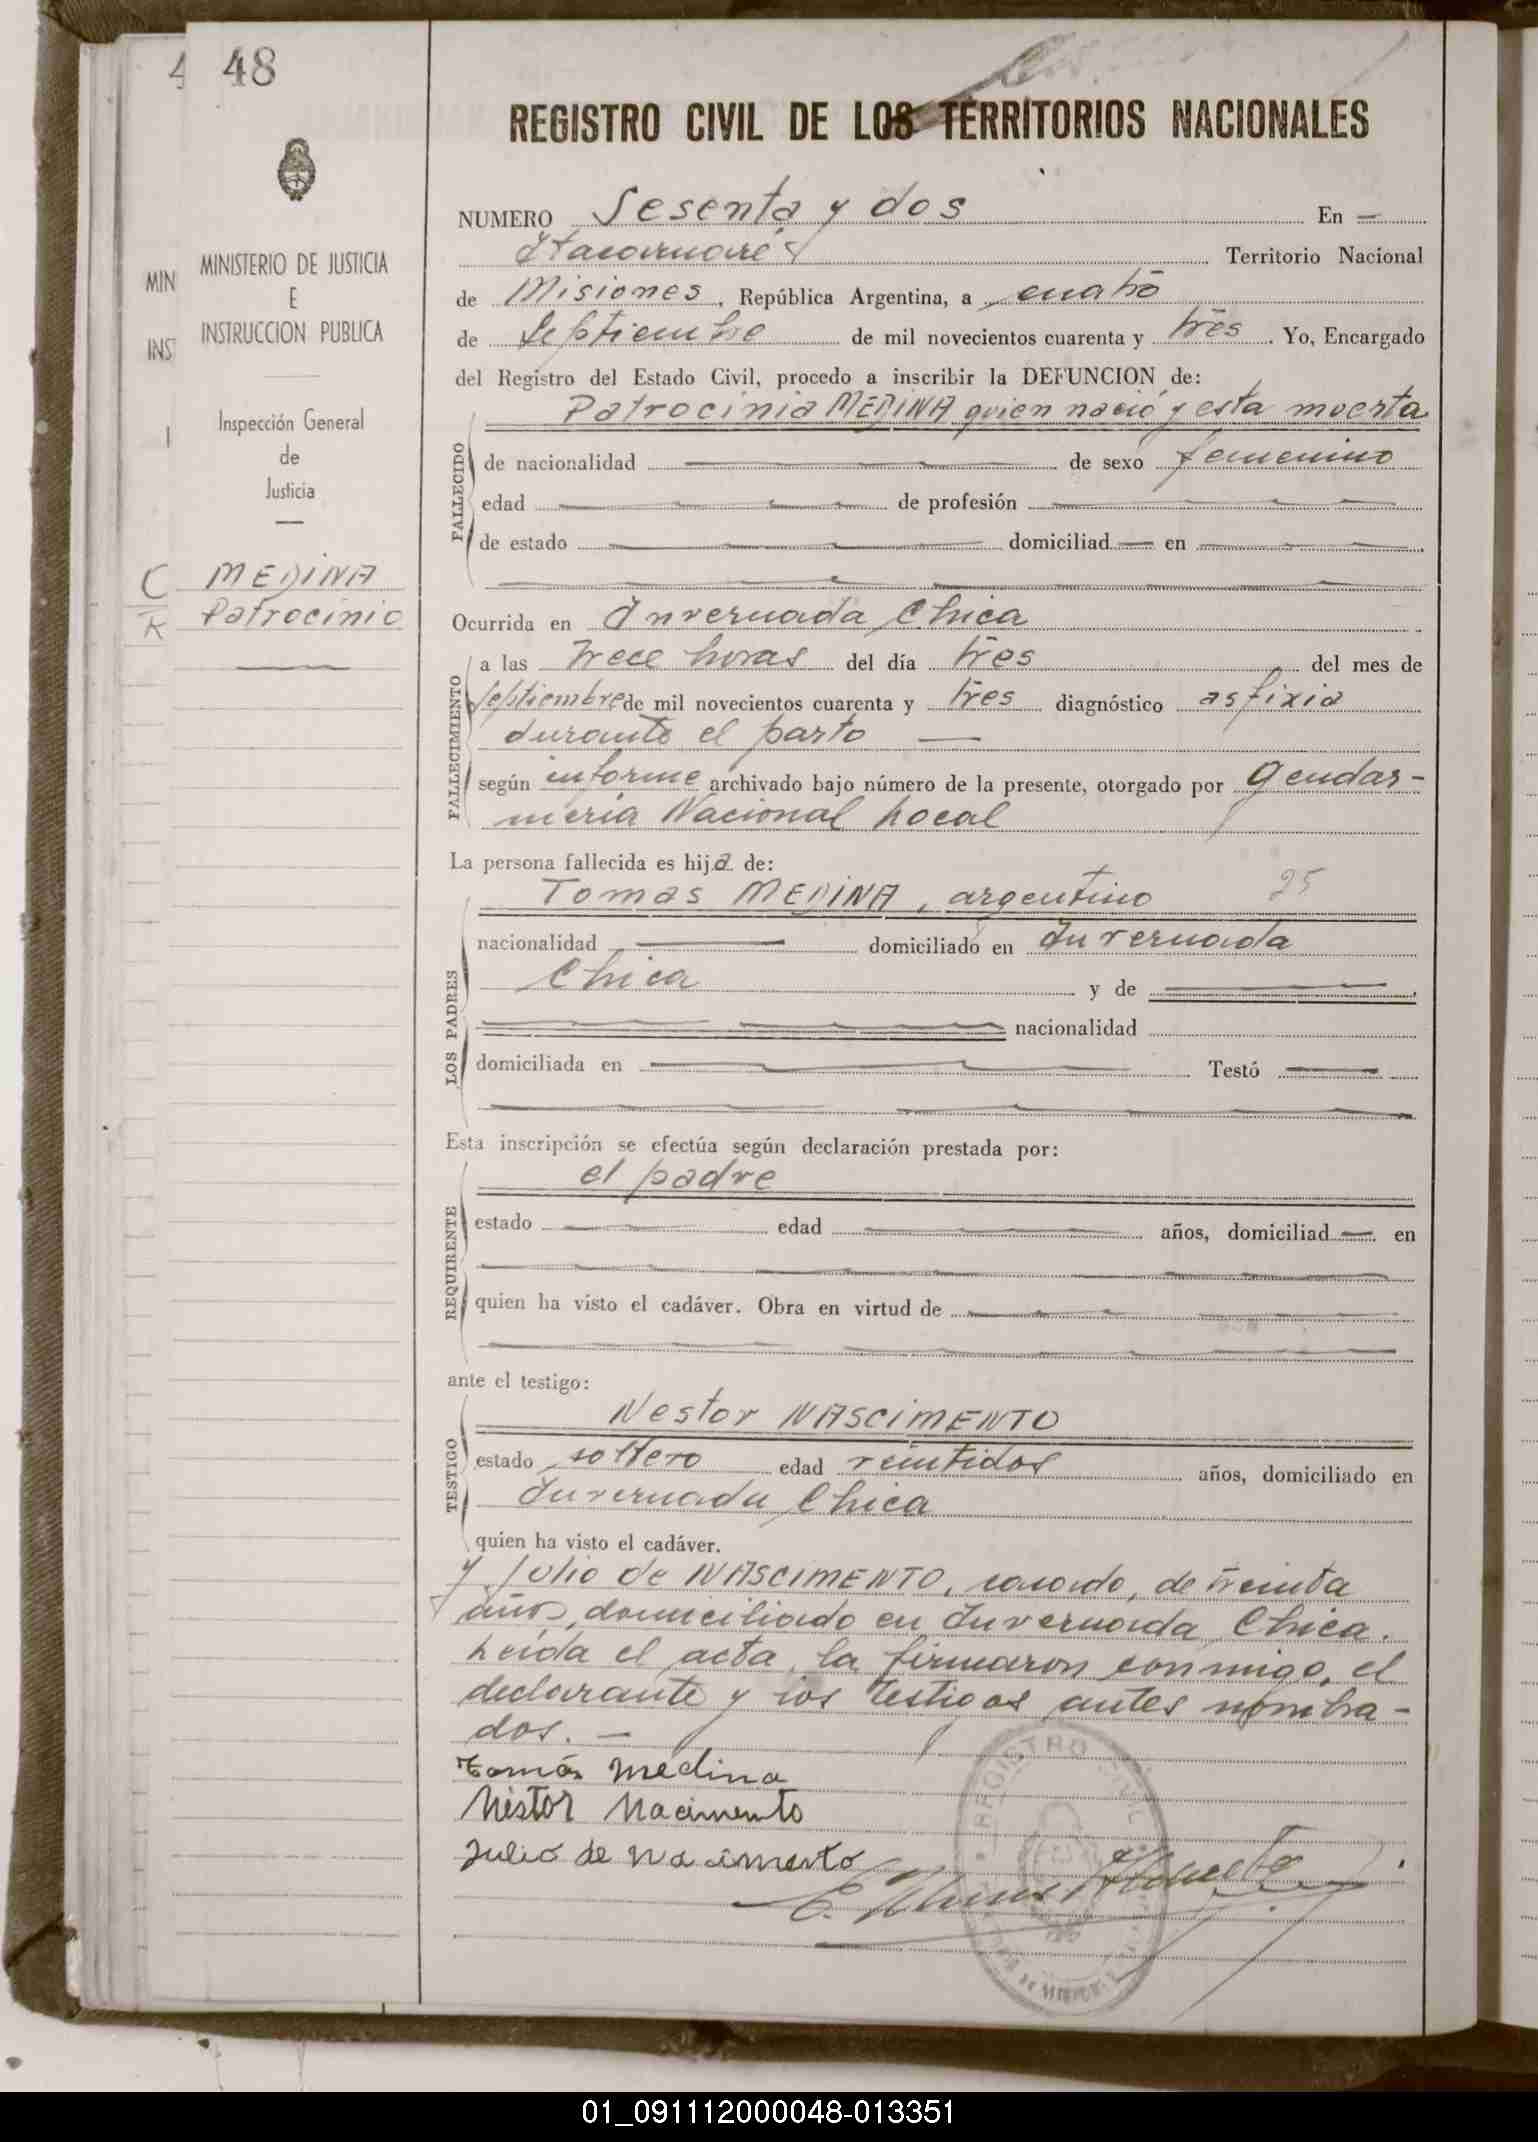 48
REGISTRO CIVIL DE LOS TERRITORIOS NACIONALES
MINISTERIO DE JUSTICIA
E
INSTRUCCION PUBLICA
Inspección General
de
Justicia
MEDINA
Patrocinio
NUMERO Sesenta y dos En —
Itacaruaré Territorio Nacional
de Misiones, República Argentina, a cuatro
de Septiembre de mil novecientos cuarenta y tres. Yo, Encargado
del Registro del Estado Civil, procedo a inscribir la DEFUNCION de:
Patrocinia MEDINA quien nació y esta muerta
FALLECIDO
de nacionalidad — de sexo femenino
edad — de profesión —
de estado — domiciliad — en —
Ocurrida en Invernada Chica
FALLECIMIENTO
a las trece horas del día tres del mes de
septiembre de mil novecientos cuarenta y tres diagnóstico asfixia
durante el parto —
según informe archivado bajo número de la presente, otorgado por Gendar-
meria Nacional Local
La persona fallecida es hija de:
Tomas MEDINA, argentino 25
LOS PADRES
nacionalidad — domiciliado en Invernada
Chica y de —
— nacionalidad
domiciliada en — Testó —
Esta inscripción se efectúa según declaración prestada por:
el padre
REQUIRENTE
estado — edad — años, domiciliad — en
quien ha visto el cadáver. Obra en virtud de —
ante el testigo:
Nestor NASCIMENTO
TESTIGO
estado soltero edad veintidos años, domiciliado en
Invernada Chica
quien ha visto el cadáver.
y Julio de NASCIMENTO, casado, de treinta
años, domiciliado en Invernada Chica.
Leída el acta, la firmaron conmigo, el
declarante y los testigos antes nombra-
dos. —
Tomás Medina
Néstor Nacimento
Julio de Nacimento
REGISTRO CIVIL
01_091112000048-013351